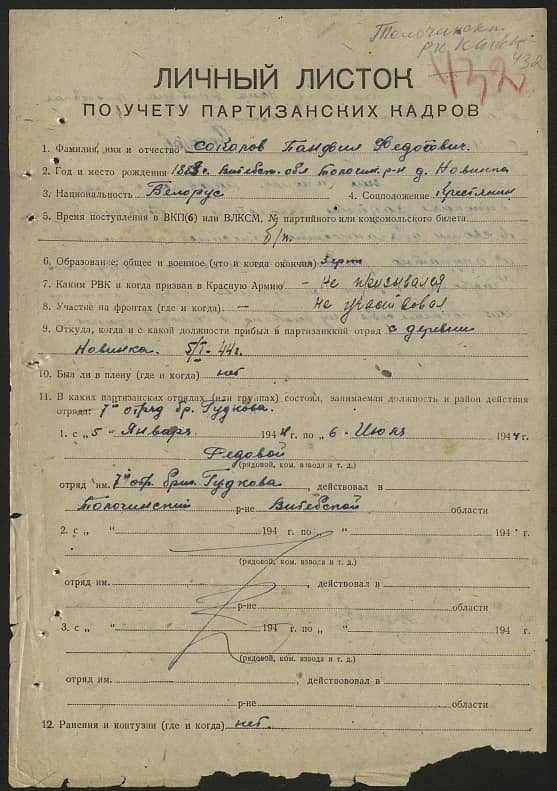 Толочинск.
432
432
ЛИЧНЫЙ ЛИСТОК
ПО УЧЕТУ ПАРТИЗАНСКИХ КАДРОВ
1. Фамилия, имя и отчество Сокоров Панфил Федотович.
2. Год и место рождения Витебск. обл Толочин. р-н д. Новинка
3. Национальность Белорус 4. Соцположение Крестянин
5. Время поступления в ВКП(б) или ВЛКСМ, № партийного или комсомольского билета
б/п.
6. Образование; общее и военное (что и когда окончил)
7. Каким РВК и когда призван в Красную Армию – не призывался
8. Участие на фронтах (где и когда) – не участвовал
9. Откуда, когда и с какой должности прибыл в партизанский отряд с деревни
Новинка. 5/I-44г.
10. Был ли в плену (где и когда) нет
11. В каких партизанских отрядах (или группах) состоял, занимаемая должность и район действия
отряда: 7й отряд бр. Гудкова.
1. с „ 5 „ Январь 1944 г. по „ 6 „ Июнь 1944 г.
Редовой
(рядовой, ком. взвода и т. д.)
отряд им. 7й отр. бриг. Гудкова, действовал в
Толочинский р-не Витебской области
2. с „ “ 194 г. по „ “ 194 г.
(рядовой, ком. взвода и т. д.)
отряд им. , действовал в
р-не области
3. с „ “ 194 г. по „ “ 194 г.
(рядовой, ком. взвода и т. д.)
отряд им. , действовал в
р-не области
12. Ранения и контузии (где и когда) нет.